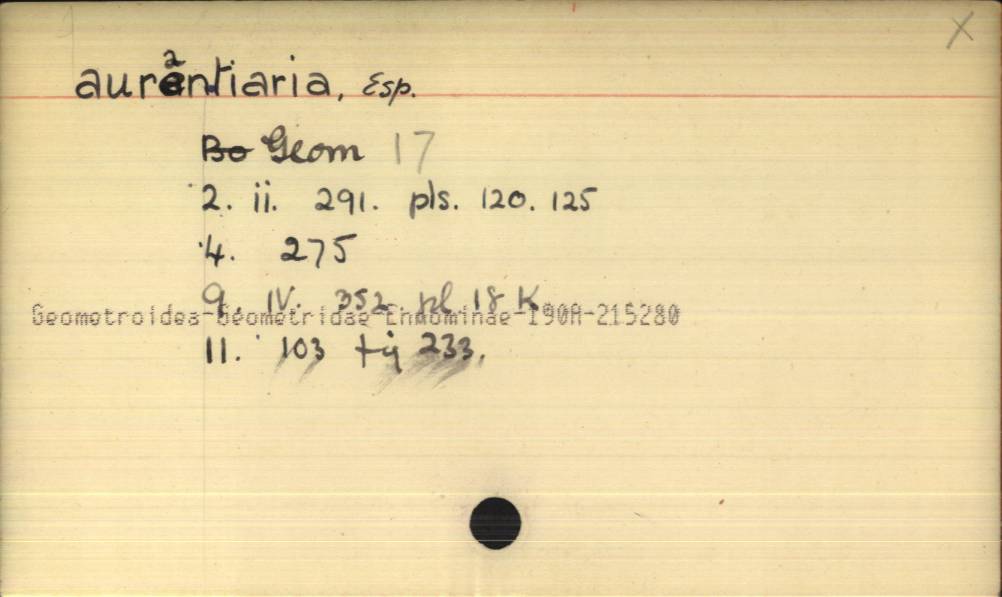 aurantiaria, Esp.
Bo Geom 17
2. ii. 291. pls. 120. 125
4. 275
9. IV. 352 pl. 18 K
Geometroidea-Geometridae-Ennominae-190A-215280
11. 103 fig 233.